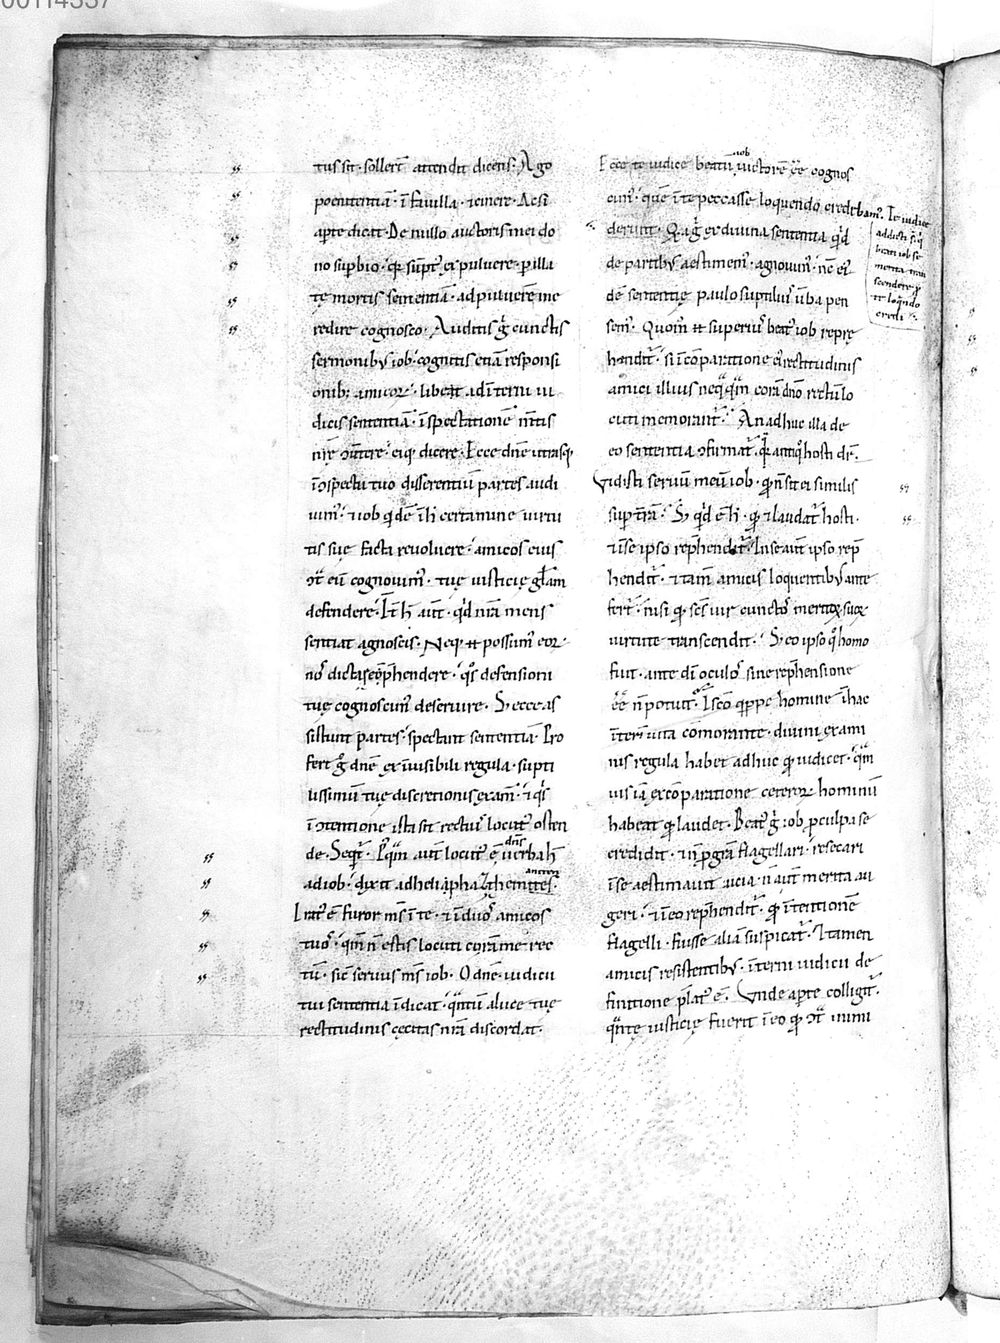 00114337
tus sit · sollert̄ attendit dicens · Ago
poenitentiā · ī favilla · ⁊cinere · Ac si
apte dicat · De nullo auctoris mei do
no supbio · qr sūpt' ex pulvere · p illa
tę mortis sententiā · ad pulverē me
redire cognosco · Auditis g̊ cunctis
sermonib; iob · cognitis etiā responsi
onib; amicor̄ ·
dicis sententiā · ī spectationē m̄tis
n̄rę · eiq; dicere · Ecce dn̄e utrasq;
ī ɔspectu tuo disserentiū partes audi
vim' · ⁊ iob qidē ī h̄ certamine virtu
tis suę facta revolvere · amicos eius
ɔt̄ eū cognovim' · tuę iusticię gl̄am
defendere · aut̄ · qd n̄ra mens
sentiat agnoscis · Neq; possum' eor̄
defensioni
tuę cognoscim' deservire · S; ecce as
sistunt partes · spectant sententiā · Pro
fer g̊ dn̄e ex īvisibili regula · supti
lissimū tuę discretionis exam̄ · ⁊ q's
ī ɔtentione ista sit rectius locut' osten
de · Seqt̄ · P'qm̄ aut̄ locut' ē dn̄s verba h̄
ad iob · dixit ad heliphaz themaniten ·
Irat' ē furor ms̄ ī te · ⁊ ī duos amicos
tuos · qm̄ n̄ estis locuti corā me rec
tū · sic̄ servus ms̄ iob · O dn̄e · iudicii
tui sententia īdicat · qntū a luce tuę
rectitudinis cęcitas n̄ra discordat ·
Ecce te iudice beatū iob victorē ēe cognos
cim' · quē ī te peccasse loquendo credebam' · Te iudice
addicti
beati iob se
merita
scendere
loq̄ndo
credi
derunt · Qa g̊ ex divina sententia qd
de partib; aestimem' · agnovim' · nc̄ ei'
dē sententię paulo suptilius v̄ba pen
sem' · Quom̄ superius beat' iob repre
hendit̄ · si ī cōparatione ei rectitudinis
amici illius neqqm̄ corā dn̄o rectū lo
cuti memorant̄ · An adhuc illa de
eo sententia ɔfirmat̄ · antiqo hosti dr̄ ·
Vidisti servū meū iob · qn̄ sit ei similis
sup trā · S; qd ē h̄ · q ⁊ laudat̄ hosti ·
⁊ īse ipso rephendit̄ · In se aut̄ ipso rep
hendit̄ · ⁊ tam̄ amicis loquentib; ante
fert̄ · nisi q · scs̄ vir cunctor̄ merita sua
virtute transcendit · S; eo ipso q homo
fuit · ante dī oculos sine rephensione
ēe n̄ potuit · In scō qppe homine ī hac
īteri vita cōmorante · divini exami
nis regula habet adhuc q iudicet · qm̄
vis iā ex cōparatione ceteror̄ hominū
habeat q laudet · Beat' g̊ iob p culpa se
credidit · ⁊ n̄ p gr̄a flagellari · resecari
īse aestimavit vicia · n̄ aut̄ merita au
geri · ⁊ ī eo rephendit̄ · q ītentionē
flagelli · fuisse aliā suspicat̄ · Et tamen
amicis resistentib; · īterni iudicii de
finitione p̄lat' ē · Unde apte colligit̄ ·
qntę iusticię fuerit ī eo q ɔt̄